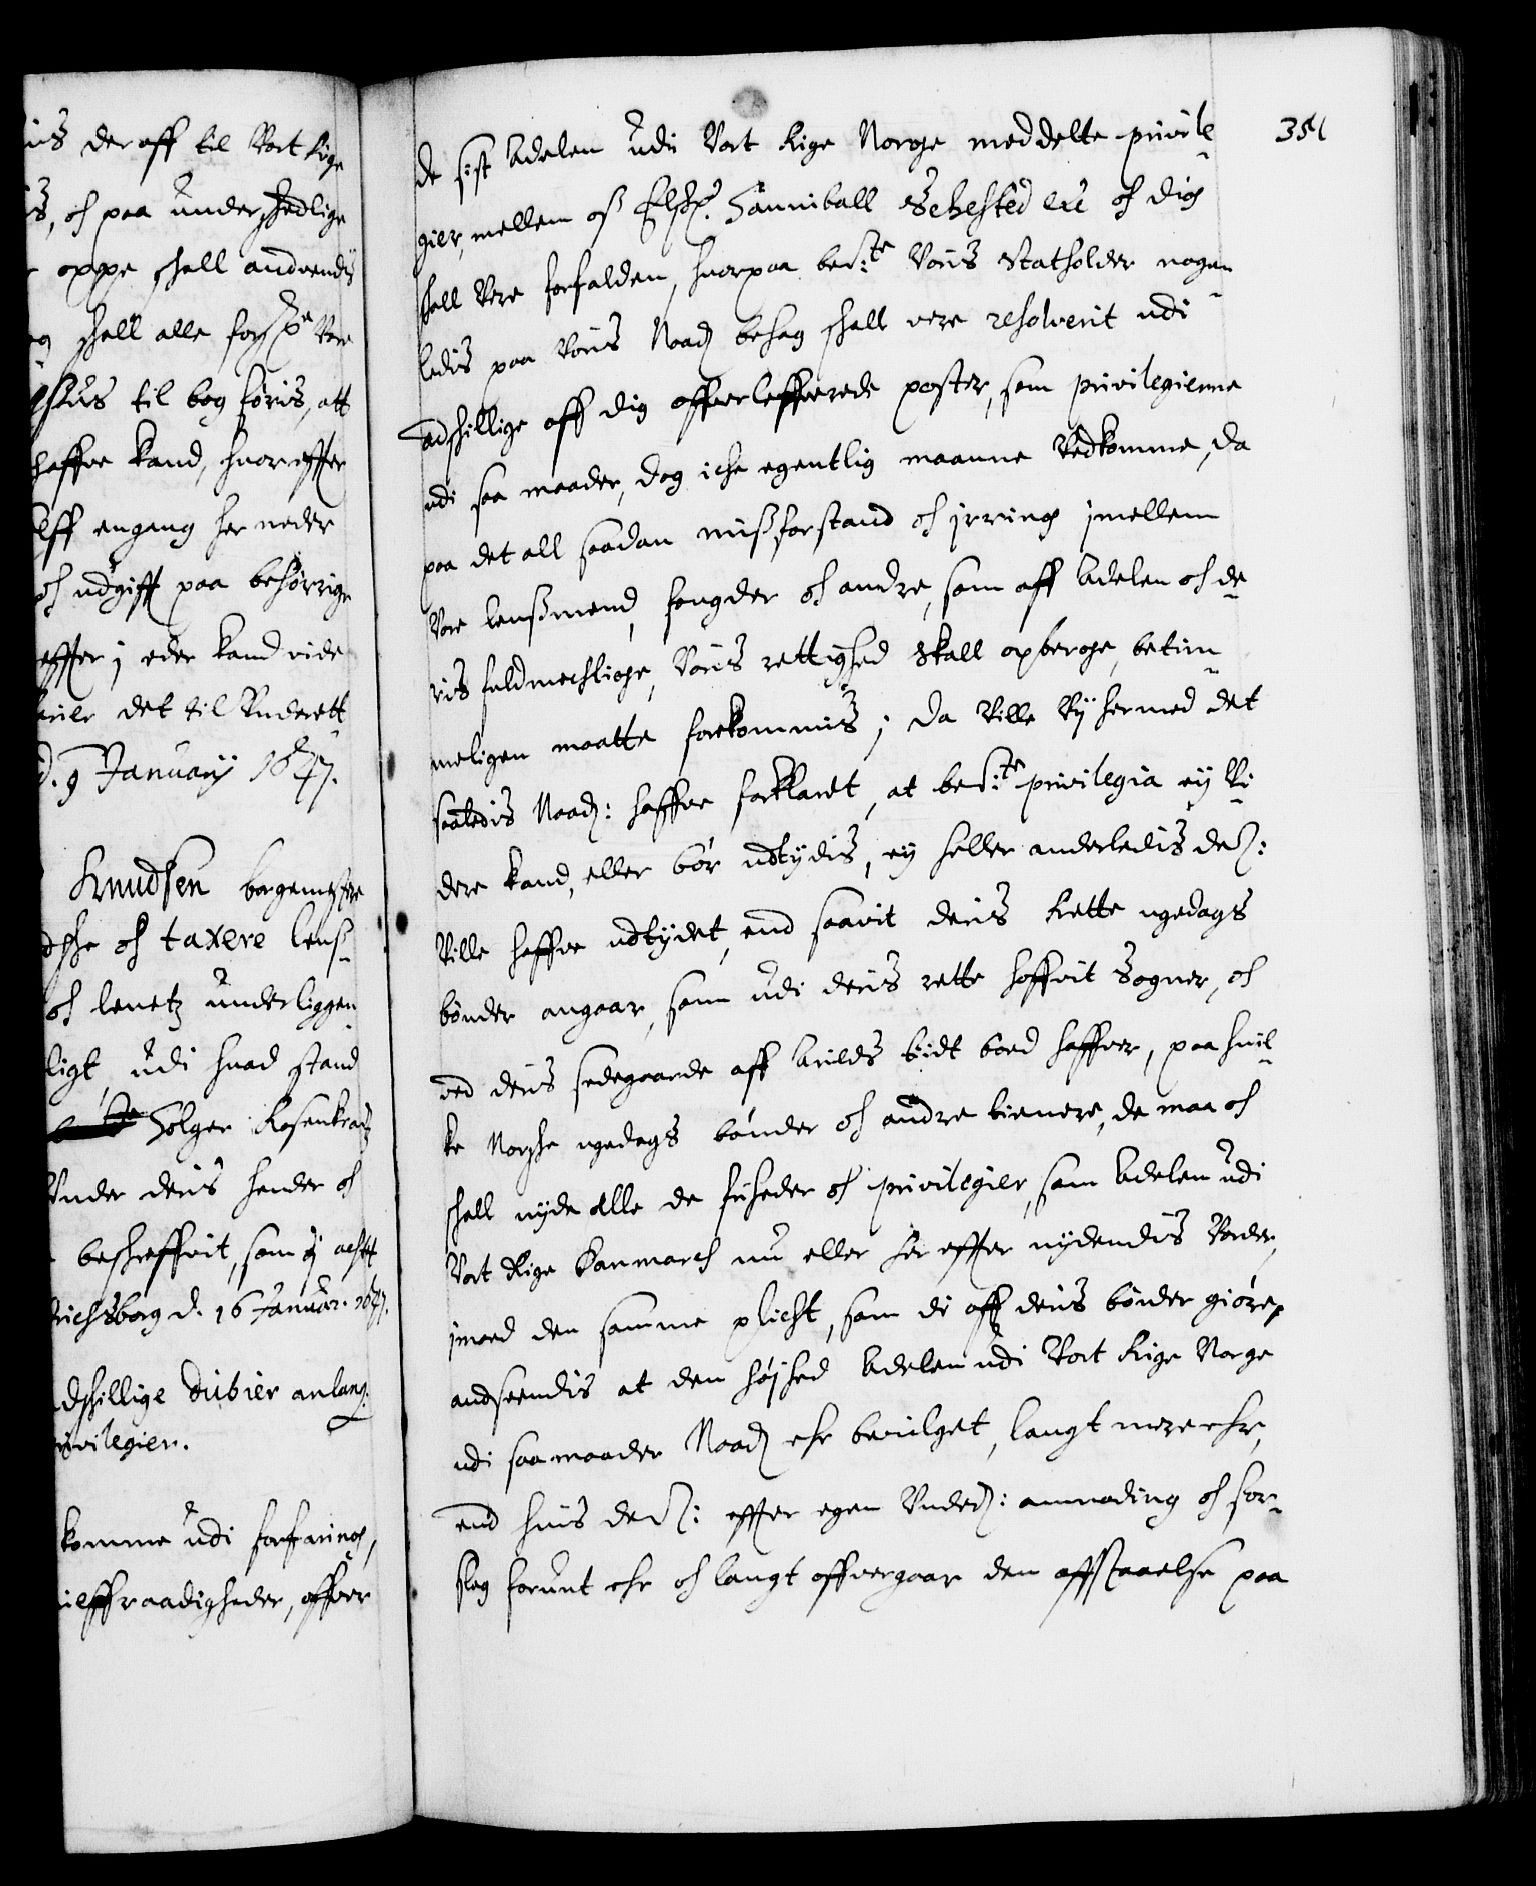 is der aff til Vort Rige
is, oc paa underskedlige
r oppe skall andvendis
og skall alle forsch:ne Vore
shus til bog føris, att
haffve kand, hvor effter
elff engang her neder
oc udgifft paa behørrige
effter j eder kand vide
det til Underett
d. 9 Januarij 1647.
Knudsen borgemestere
dske oc taxere lens¬
oc lenetz underliggen¬
ligt, udi hvad stand
Holger Rosenkrantz
Under deris hender oc
beskreffvit, som ij achtt
richsborg d. 16 Januar. 1647.
dskillige dubier anlang:
privilegier.
komme udi forfaring,
offver
351
de sist Adelen udi Vort Rige Norge meddelte privile¬
gier, mellem os Elsch: Hanniball Sehested etc oc dig
skall Vere forfalden, hvorpaa bem:te Voris Statholder nogen¬
ledis paa Voris Naad: behag skall vere resolverit udi
adskillige aff dig offverleffverede poster, som privilegierne
udi saa maader, dog iche egentlig maanne Vedkomme, da
paa det all saadan misforstand oc jrring jmellem
Vore lensmend, fougder oc andre, som aff Adelen oc de¬
ris fuldmechtige, Voris rettighed skall opberge, betim¬
meligen maatte forekommis; Da Ville Vij hermed det
saaledis Naad: haffve forklaret, at bem:te privilegia eij Vi¬
dere kand, eller bør udtydis, eij heller anderledis dem:
Ville haffve udtydet, end saavit deris Rette ugedags
bønder angaar, som udi deris rette hoffvit Sogner, oc
ved deris sedegaarde aff Arilds tiidt boed haffver, paa huil¬
ke Norske ugedags bønder oc andre tienere, de maa oc
skall nyde alle de friheder oc privilegier, som Adelen udi
Vort Rige Danmarch nu eller her effter nydendis Vorder,
jmod den samme plicht, som de aff deris bønder giøre,
andseendis at den højhed Adelen udi Vort Rige Norge
udi saa maader Naad: ehr beuilget, langt mere ehr,
end huis dem: effter egen Underd: anmoding oc for¬
slag forunt ehr oc langt offvergaar den affstaaelse paa